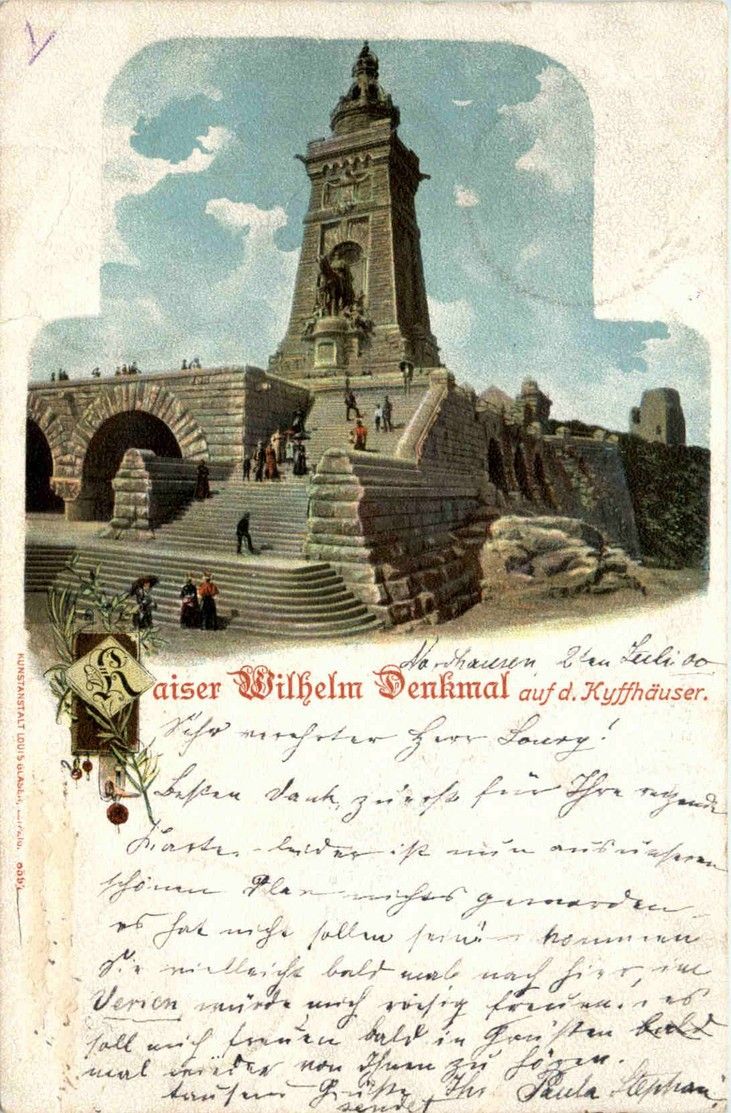 1
Nordhausen, 2ten Juli 00
Kaiser Wilhelm Denkmal auf d. Kyffhäuser.
KUNSTANSTALT LOUIS GLASER, LEIPZIG.
Sehr verehrter Herr
Besten Dank zuerst für Ihre
Karte. leider ist nun aus unserem
schönen Plan nichts geworden
es hat nicht sollen sein kommen
Sie vielleicht bald mal nach hier, im
würde mich riesig freuen. es
soll mich freuen bald in bald
mal wieder von Ihnen zu hören.
tausend Grüße Ihr Paula Stephan
sendet